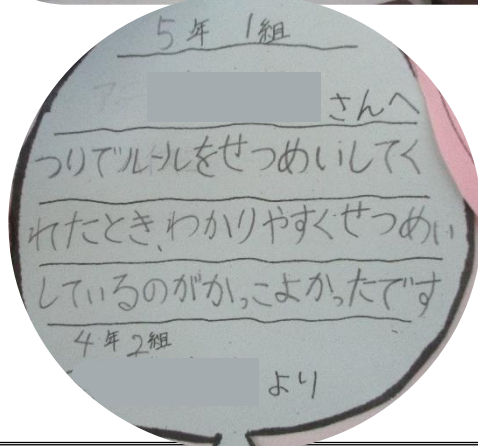 5年 1組
さんへ
つりでルールをせつめいしてく
れたとき、わかりやすくせつめい
しているのがかっこよかったです
4年2組
より